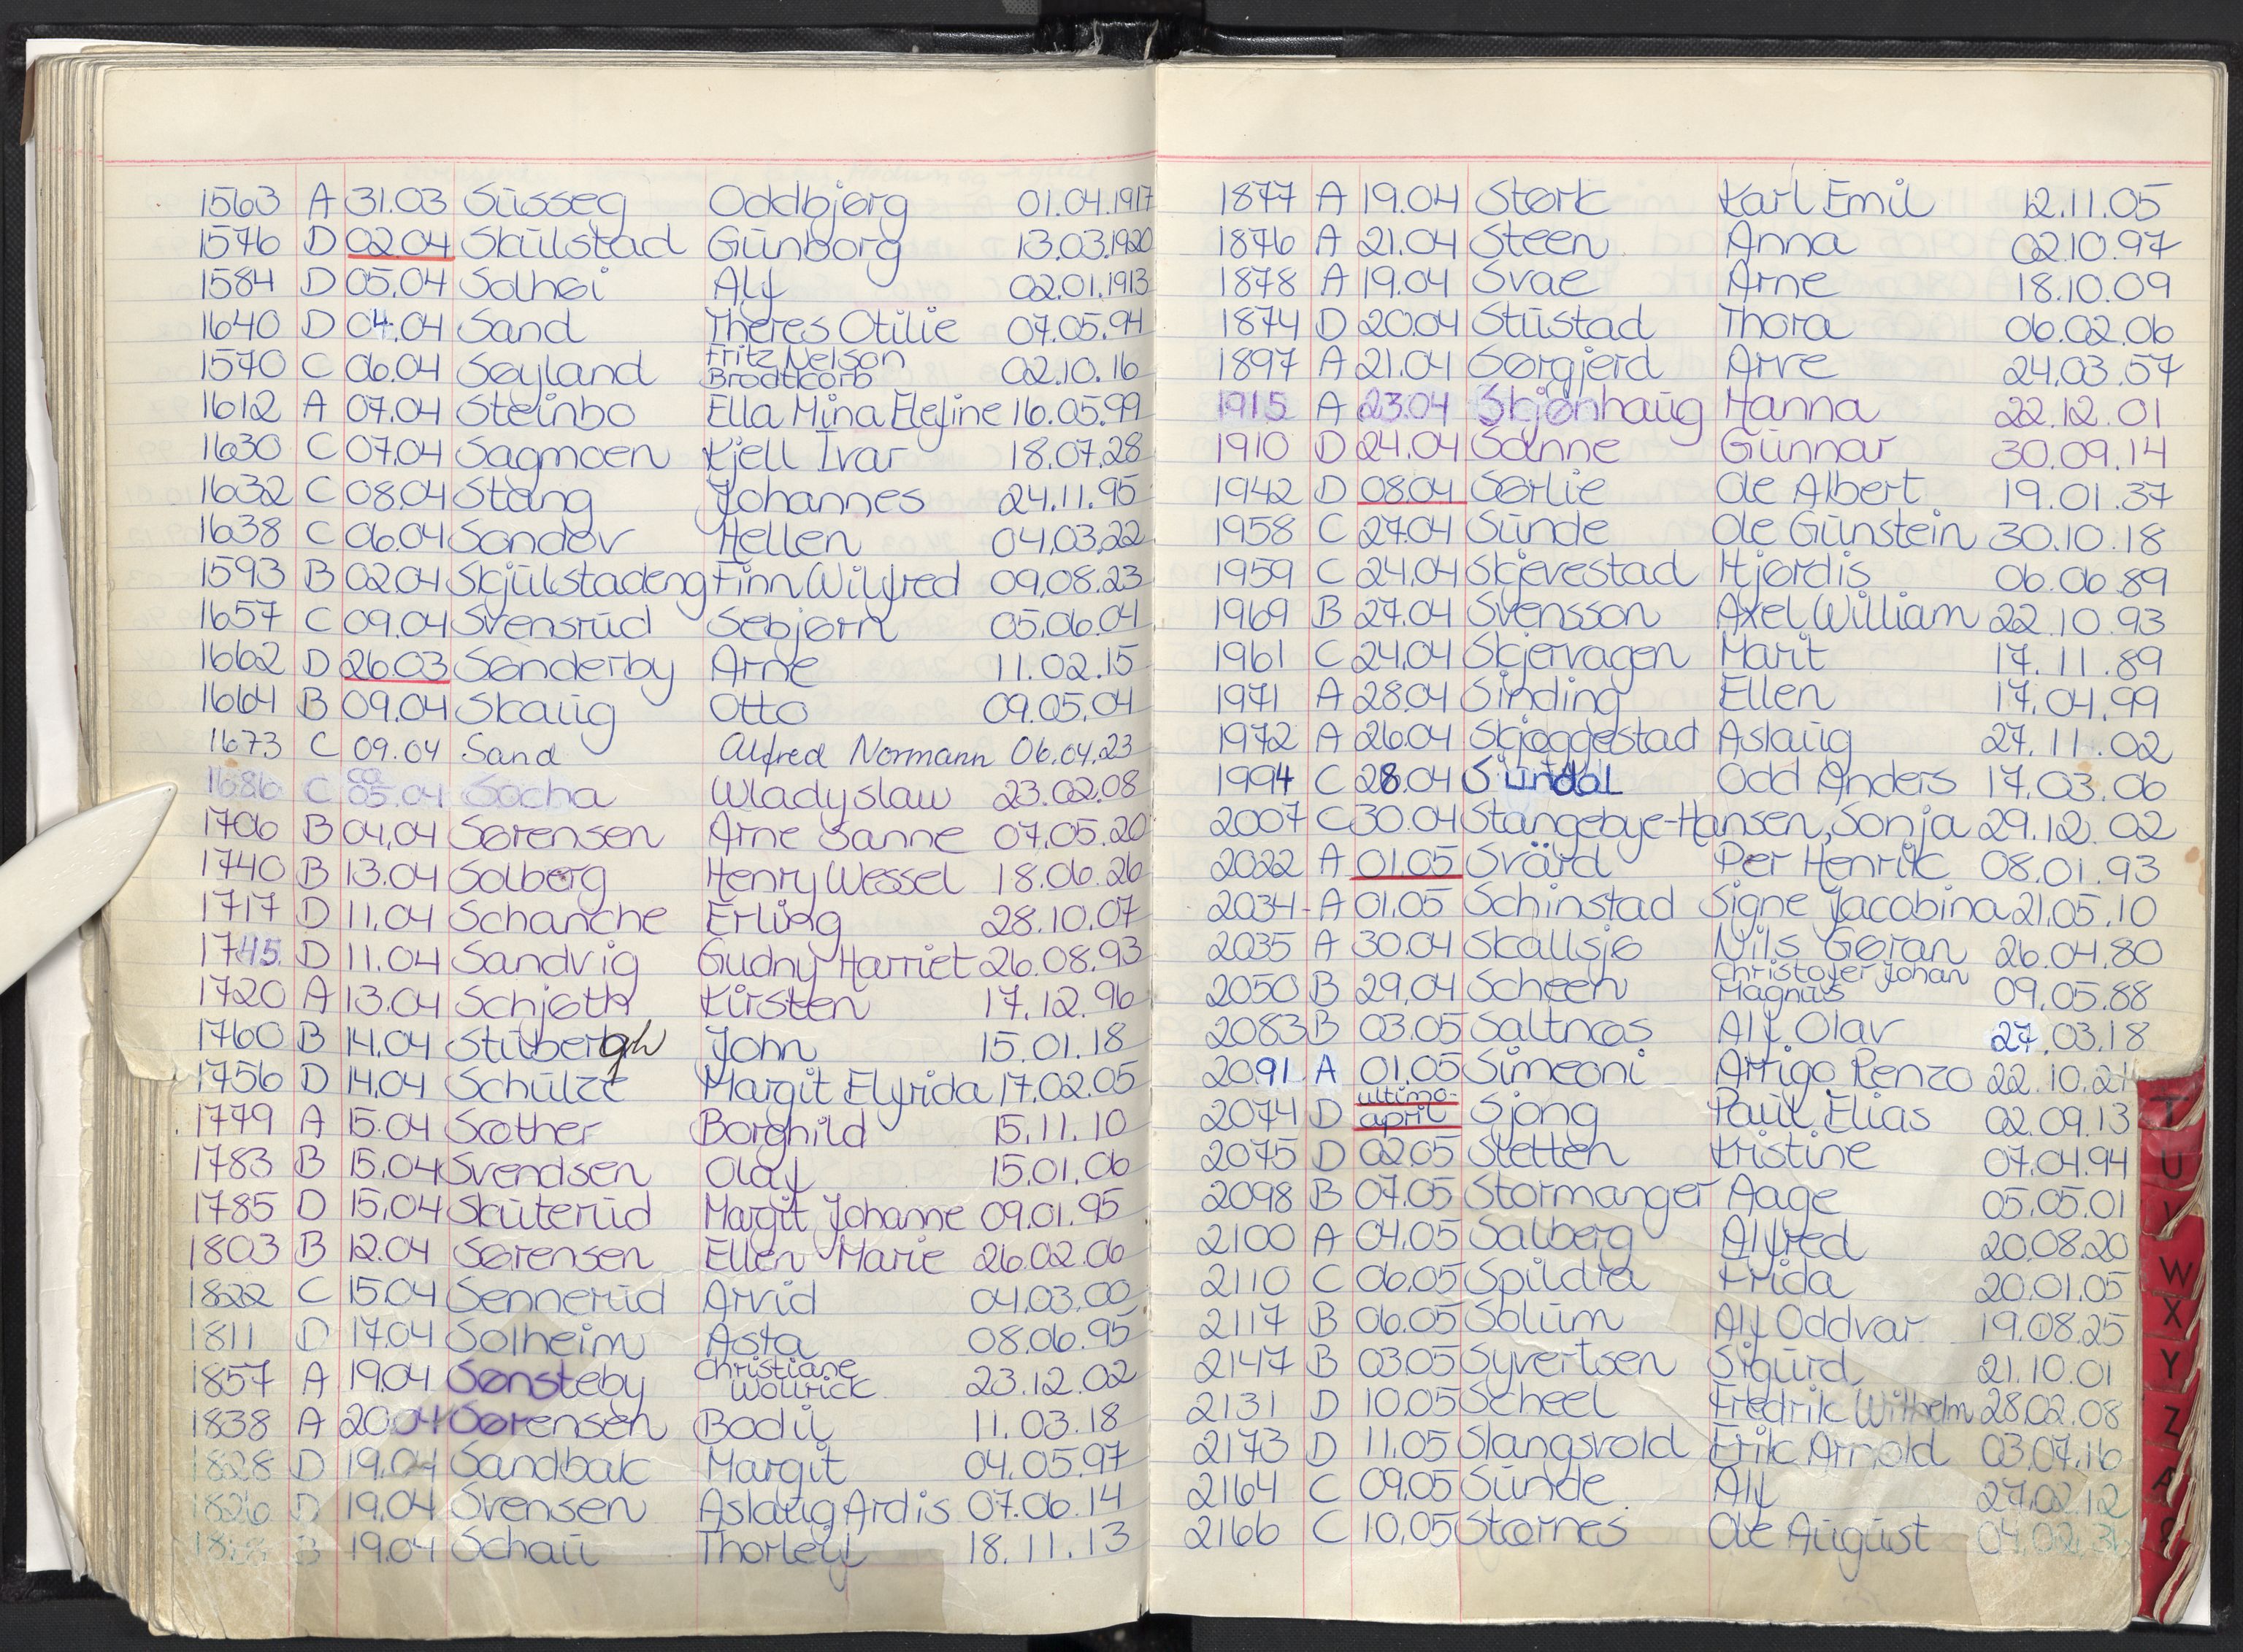 1563 A 31.03 Süsseg Oddbjørg 01.04.1917
1576 D 02.04 Skülstad Günborg 13.03.1920
1584 D 05.04 Solhøi Alf 02.01.1913
1640 D 04.04 Sand Theres Otilie 07.05.94
1570 C 06.04 Søyland Fritz Nelson Brodtkorb 02.10.16
1612 A 07.04 Steinbo Ella Mina Elefine 16.05.99
1630 C 07.04 Sagmoen Kjell Ivar 18.07.28
1632 C 08.04 Stang Johannes 24.11.95
1638 C 06.04 Sandøv Hellen 04.03.22
1593 B 02.04 Skjülstadeng Finn Wilfred 09.08.23
1657 C 09.04 Svensrüd Sebjørn 05.06.04
1662 D 26.03 Sønderby Arne 11.02.15
1664 B 09.04 Skaüg Otto 09.05.04
1673 C 09.04 Sand Alfred Normann 06.04.23
1686 C ca 05.04 Socha Wladyslaw 23.02.08
1706 B 04.04 Sørensen Arne Sanne 07.05.20
1740 B 13.04 Solberg Henry Wessel 18.06.26
1717 D 11.04 Schanche Erling 28.10.07
1745 D 11.04 Sandvig Gudny Harriet 26.08.93
1720 A 13.04 Schjøth Kirsten 17.12.96
1760 B 14.04 Stübergh John 15.01.18
1756 D 14.04 Schülze Margit Elfrida 17.02.05
1779 A 15.04 Sæther Borghild 15.11.10
1783 B 15.04 Svendsen Olaf 15.01.06
1785 D 15.04 Sküterüd Margit Johanne 09.01.95
1803 B 12.04 Sørensen Ellen Marie 26.02.06
1822 C 15.04 Sennerüd Arvid 04.03.00
1811 D 17.04 Solheim Asta 08.06.95
1857 A 19.04 Sønsteby Christiane Wollrick 23.12.02
1838 A 20.04 Sørensen Bodil 11.03.18
1828 D 19.04 Sandbak Margit 04.05.97
1826 D 19.04 Svensen Aslaüg Ardis 07.06.14
B 19.04 Schaü Thorleif 18.11.13
1877 A 19.04 Størk Karl Emil 12.11.05
1876 A 21.04 Steen Anna 02.10.97
1878 A 19.04 Svae Arne 18.10.09
1874 D 20.04 Stüstad Thora 06.02.06
1897 A 21.04 Sørgjerd Arve 24.03.57
1915 A 23.04 Skjønhaüg Hanna 22.12.01
1910 D 24.04 Sanne Günnar 30.09.14
1942 D 08.04 Sørlie Ole Albert 19.01.37
1958 C 27.04 Sünde Ole Günstein 30.10.18
1959 C 24.04 Skjevestad Hjørdis 06.06.89
1969 B 27.04 Svensson Axel William 22.10.93
1961 C 24.04 Skjervagen Marit 17.11.89
1971 A 28.04 Sinding Ellen 17.04.99
1972 A 26.04 Skjøggestad Aslaüg 27.11.02
1994 C 28.04 Sündal Odd Anders 17.03.06
2007 C 30.04 Stangebye-Hansen, Sonja 29.12.02
2022 A 01.05 Svärd Per Henrik 08.01.93
2034- A 01.05 Schinstad Signe Jacobina 21.05.10
2035 A 30.04 Skallsjø Nils Gøran 26.04.80
2050 B 29.04 Scheen Christofer Johan Magnüs 09.05.88
2083 B 03.05 Saltnæs Alf Olav 27.03.18
2091 A 01.05 Simeoni Arrigo Renzo 22.10.24
2074 D ultimo- april Sjong Paül Elias 02.09.13
2075 D 02.05 Sletten Kristine 07.04.94
2098 B 07.05 Stormanger Aage 05.05.01
2100 A 04.05 Salberg Alfred 20.08.20
2110 C 06.05 Spildra Frida 20.01.05
2117 B 06.05 Solüm Alf Oddvar 19.08.25
2147 B 03.05 Syvertsen Sigürd 21.10.01
2131 D 10.05 Scheel Fredrik Wilhelm 28.02.08
2173 D 11.05 Slangsvold Erik Arnold 03.07.16
2164 C 09.05 Sünde Alf 27.02.12
2166 C 10.05 Stornes Ole Aügüst 04.02.31
T
U
V
W
X
Y
Z